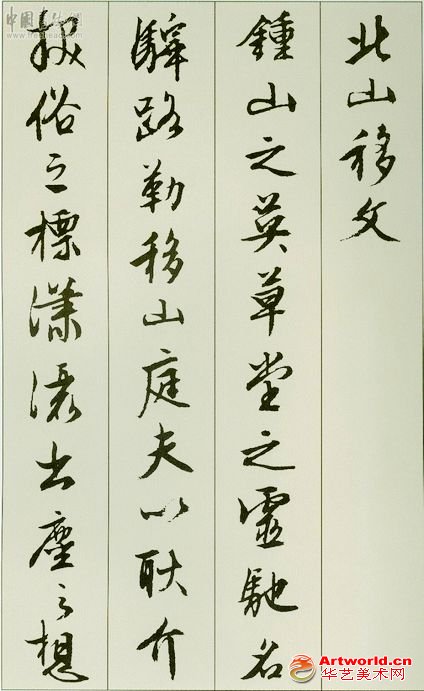 北山移文
鍾山之英草堂之靈馳名
驛路勒移山庭夫以耿介
拔俗之標瀟灑出塵之想
Artworld.cn
华艺美术网